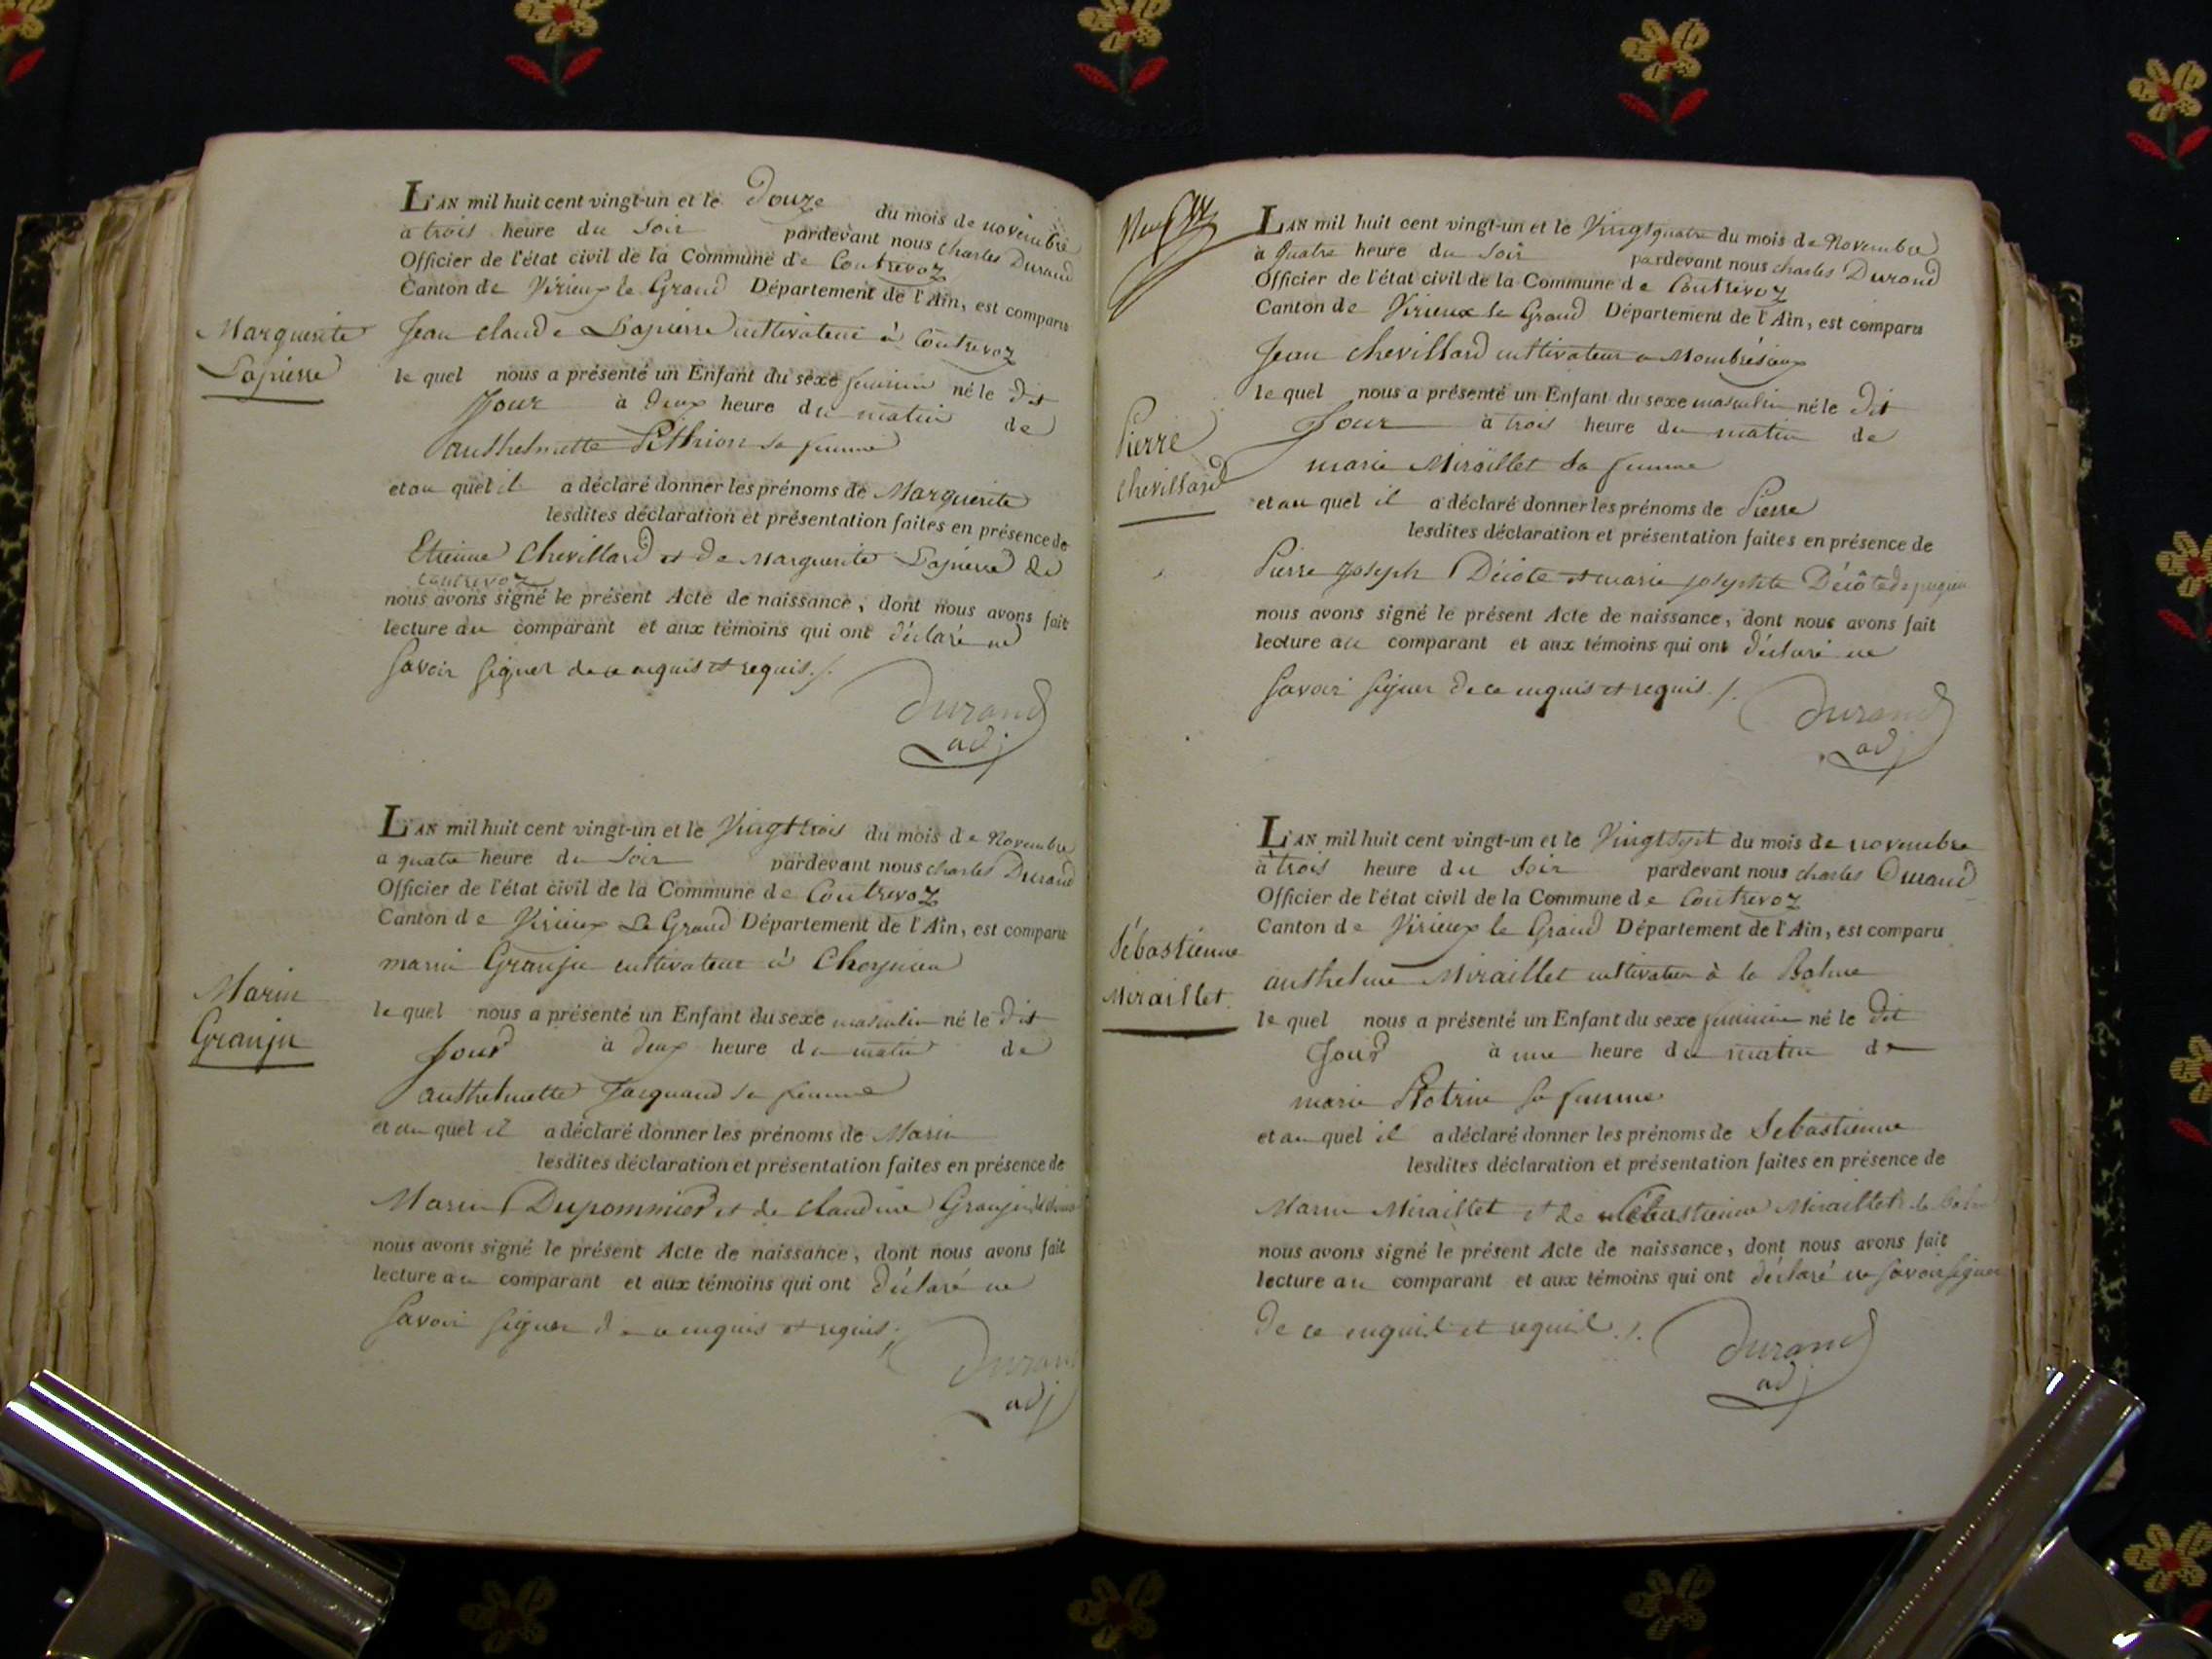 L'AN mil huit cent vingt-un et le Douze du mois de novembre
à trois heure du Soir pardevant nous charles Durand
Officier de l'état civil de la Commune de Contrevoz
Canton de Virieux le Grand Département de l'Ain, est comparu
Marguerite
Lapierre
Jean claude Lapierre cultivateur à Contrevoz
le quel nous a présenté un Enfant du sexe feminin né le dit
Jour à deux heure du matin de
anthelmette Pithion sa femme
et au quel il a déclaré donner les prénoms de Marguerite
lesdites déclaration et présentation faites en présence de
Etienne Chevillard et de Marguerite Lapierre de
contrevoz
nous avons signé le présent Acte de naissance, dont nous avons fait
lecture au comparant et aux témoins qui ont déclaré ne
Savoir signer de ce enquis et requis ./.
Durand
adj
L'AN mil huit cent vingt-un et le Vingt trois du mois de Novembre
a quatre heure du Soir pardevant nous charles Durand
Officier de l'état civil de la Commune de Contrevoz
Canton de Virieux Le Grand Département de l'Ain, est comparu
Marin
Granju
marin Granju cultivateur à
le quel nous a présenté un Enfant du sexe masculin né le dit
Jour à deux heure du matin de
anthelmette Jacquand sa femme
et au quel il a déclaré donner les prénoms de Marin
lesdites déclaration et présentation faites en présence de
Marin Dupommier et de claudine Granju
nous avons signé le présent Acte de naissance, dont nous avons fait
lecture au comparant et aux témoins qui ont déclaré ne
Savoir signer de ce enquis et requis ./.
Durand
adj
L'AN mil huit cent vingt-un et le Vingt quatre du mois de Novembre
à quatre heure du Soir pardevant nous charles Durand
Officier de l'état civil de la Commune de Contrevoz
Canton de Virieux le Grand Département de l'Ain, est comparu
Jean chevillard cultivateur a Mombrésieux
le quel nous a présenté un Enfant du sexe masculin né le dit
Pierre
chevillard
Jour à trois heure du matin de
marie Miraillet sa femme
et au quel il a déclaré donner les prénoms de Pierre
lesdites déclaration et présentation faites en présence de
Pierre Joseph Décôte et marie josephte Décôte de pugieu
nous avons signé le présent Acte de naissance, dont nous avons fait
lecture au comparant et aux témoins qui ont déclaré ne
Savoir signer de ce enquis et requis ./.
Durand
adj
L'AN mil huit cent vingt-un et le Vingt sept du mois de novembre
à trois heure du Soir pardevant nous charles Durand
Officier de l'état civil de la Commune de Contrevoz
Canton de Virieux le Grand Département de l'Ain, est comparu
Sébastienne
Miraillet
anthelme Miraillet cultivateur à la Balme
le quel nous a présenté un Enfant du sexe feminin né le dit
Jour à une heure du matin de
marie sa femme
et au quel il a déclaré donner les prénoms de Sébastienne
lesdites déclaration et présentation faites en présence de
Marin Miraillet et de Sébastienne Miraillet
nous avons signé le présent Acte de naissance, dont nous avons fait
lecture au comparant et aux témoins qui ont déclaré ne savoir signer
de ce enquis et requis ./.
Durand
adj